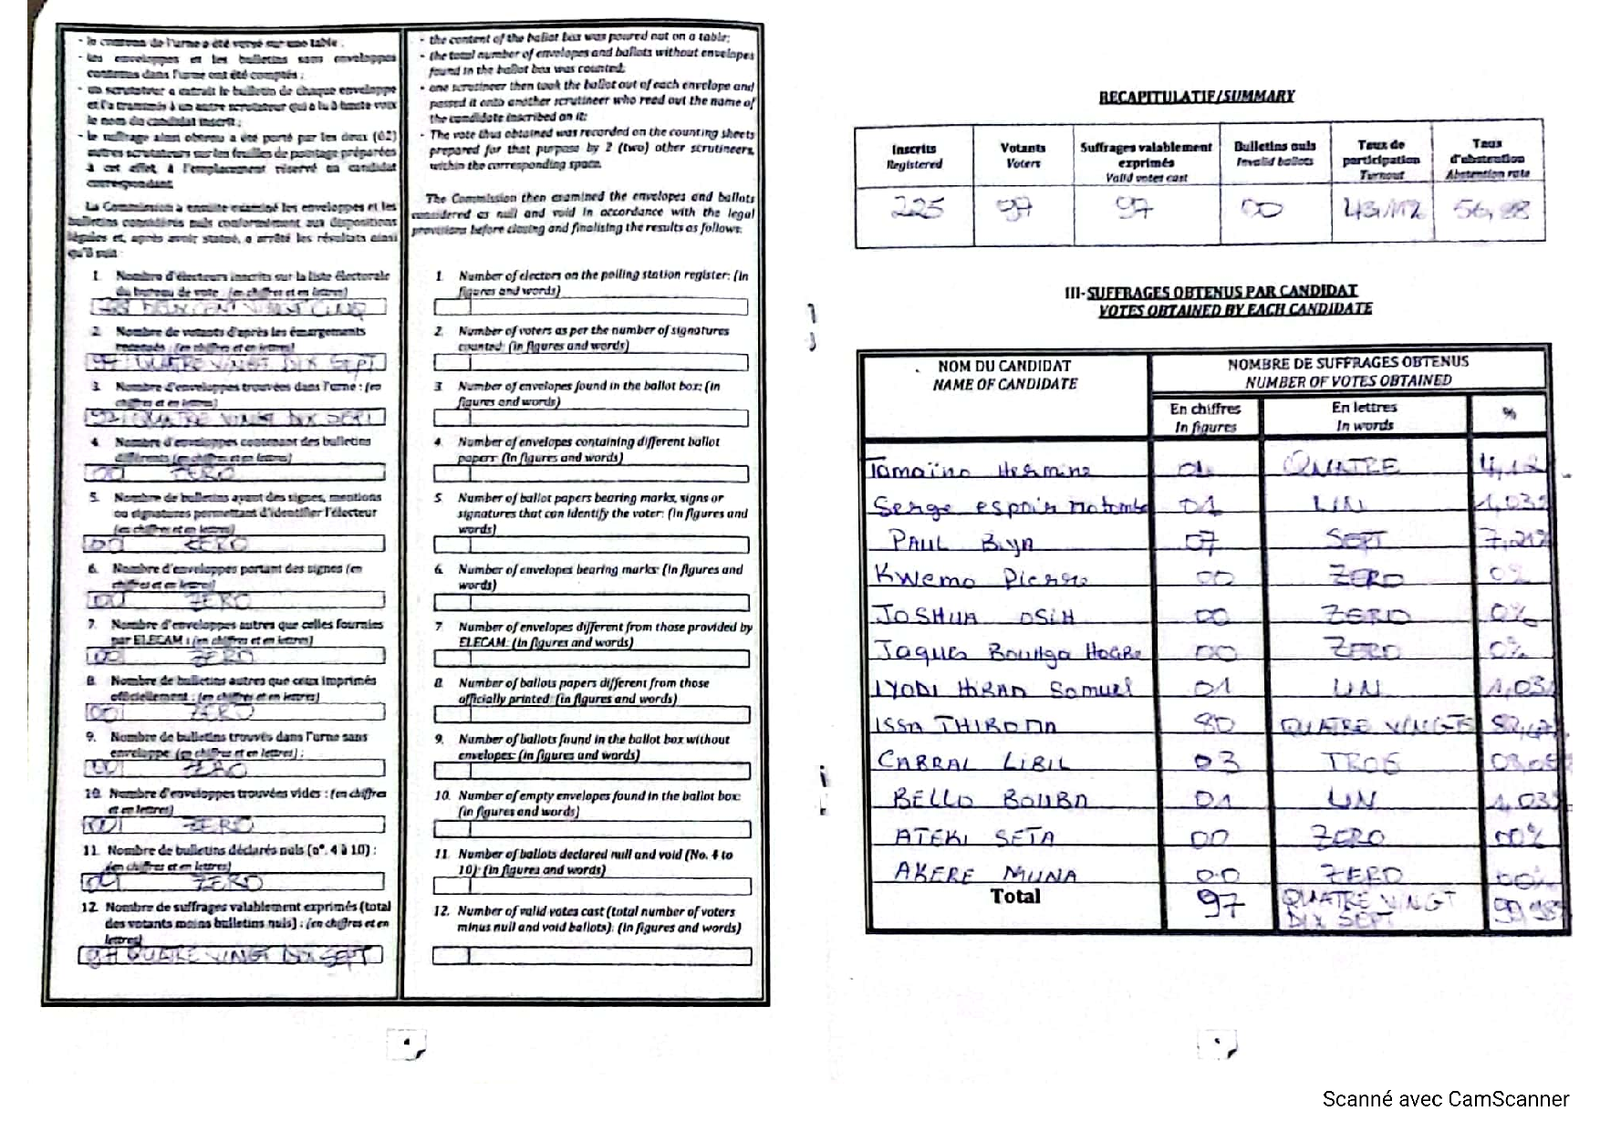 - le contenu de l'urne a été versé sur une table ;
- les enveloppes et les bulletins sans enveloppes
contenus dans l'urne ont été comptés ;
- un scrutateur a extrait le bulletin de chaque enveloppe
et l'a transmis à un autre scrutateur qui a lu à haute voix
le nom du candidat inscrit ;
- le suffrage ainsi obtenu a été porté par les deux (02)
autres scrutateurs sur les feuilles de pointage préparées
à cet effet, à l'emplacement réservé au candidat
correspondant.
La Commission a ensuite examiné les enveloppes et les
bulletins considérés nuls conformément aux dispositions
légales et, après avoir statué, a arrêté les résultats ainsi
qu'il suit :
1. Nombre d'électeurs inscrits sur la liste électorale
du bureau de vote (en chiffres et en lettres)
DEUX CENT VINGT CINQ
2. Nombre de votants d'après les émargements
recensés : (en chiffres et en lettres)
97 QUATRE VINGT DIX SEPT
3. Nombre d'enveloppes trouvées dans l'urne : (en
chiffres et en lettres)
97 QUATRE VINGT DIX SEPT
4. Nombre d'enveloppes contenant des bulletins
différents (en chiffres et en lettres)
00 ZERO
5. Nombre de bulletins ayant des signes, mentions
ou signatures permettant d'identifier l'électeur
(en chiffres et en lettres)
00 ZERO
6. Nombre d'enveloppes portant des signes (en
chiffres et en lettres)
00 ZERO
7. Nombre d'enveloppes autres que celles fournies
par ELECAM : (en chiffres et en lettres)
00 ZERO
8. Nombre de bulletins autres que ceux imprimés
officiellement : (en chiffres et en lettres)
00 ZERO
9. Nombre de bulletins trouvés dans l'urne sans
enveloppe (en chiffres et en lettres) :
00 ZERO
10. Nombre d'enveloppes trouvées vides : (en chiffres
et en lettres)
00 ZERO
11. Nombre de bulletins déclarés nuls (n°. 4 à 10) :
(en chiffres et en lettres)
00 ZERO
12. Nombre de suffrages valablement exprimés (total
des votants moins bulletins nuls) : (en chiffres et en
lettres)
97 QUATRE VINGT DIX SEPT
- the content of the ballot box was poured out on a table;
- the total number of envelopes and ballots without envelopes
found in the ballot box was counted;
- one scrutineer then took the ballot out of each envelope and
passed it onto another scrutineer who read out the name of
the candidate inscribed on it;
- The vote thus obtained was recorded on the counting sheets
prepared for that purpose by 2 (two) other scrutineers,
within the corresponding space.
The Commission then examined the envelopes and ballots
considered as null and void in accordance with the legal
provisions before closing and finalising the results as follows:
1. Number of electors on the polling station register: (in
figures and words)
2. Number of voters as per the number of signatures
counted: (in figures and words)
3. Number of envelopes found in the ballot box: (in
figures and words)
4. Number of envelopes containing different ballot
papers: (in figures and words)
5. Number of ballot papers bearing marks, signs or
signatures that can identify the voter: (in figures and
words)
6. Number of envelopes bearing marks: (in figures and
words)
7. Number of envelopes different from those provided by
ELECAM: (in figures and words)
8. Number of ballots papers different from those
officially printed: (in figures and words)
9. Number of ballots found in the ballot box without
envelopes: (in figures and words)
10. Number of empty envelopes found in the ballot box:
(in figures and words)
11. Number of ballots declared null and void (No. 4 to
10): (in figures and words)
12. Number of valid votes cast (total number of voters
minus null and void ballots): (in figures and words)
4
RECAPITULATIF/SUMMARY
Inscrits Registered Votants Voters Suffrages valablement exprimés Valid votes cast Bulletins nuls Invalid ballots Taux de participation Turnout Taux d'abstention Abstention rate
225 97 97 00 43,112 56,88
III- SUFFRAGES OBTENUS PAR CANDIDAT
VOTES OBTAINED BY EACH CANDIDATE
NOM DU CANDIDAT NOMBRE DE SUFFRAGES OBTENUS
NAME OF CANDIDATE NUMBER OF VOTES OBTAINED
En chiffres En lettres %
In figures In words
Tamaïno Hermine 04 QUATRE 4,12
Serge espoir Matomba 01 UN 1,03%
PAUL BIYA 07 SEPT 7,21%
Kwemo Pierre 00 ZERO 0%
JOSHUA OSIH 00 ZERO 0%
Jaques Bouhga Hagbe 00 ZERO 0%
IYODI HIRAM Samuel 01 UN 1,03%
ISSA THIROMA 80 QUATRE VINGTS 82,47%
CABRAL LIBIL 03 TROIS 03,09%
BELLO BOUBA 01 UN 1,03%
ATEKI SETA 00 ZERO 00%
AKERE MUNA 00 ZERO 00%
Total 97 QUATRE VINGT DIX SEPT 99,98%
Scanné avec CamScanner